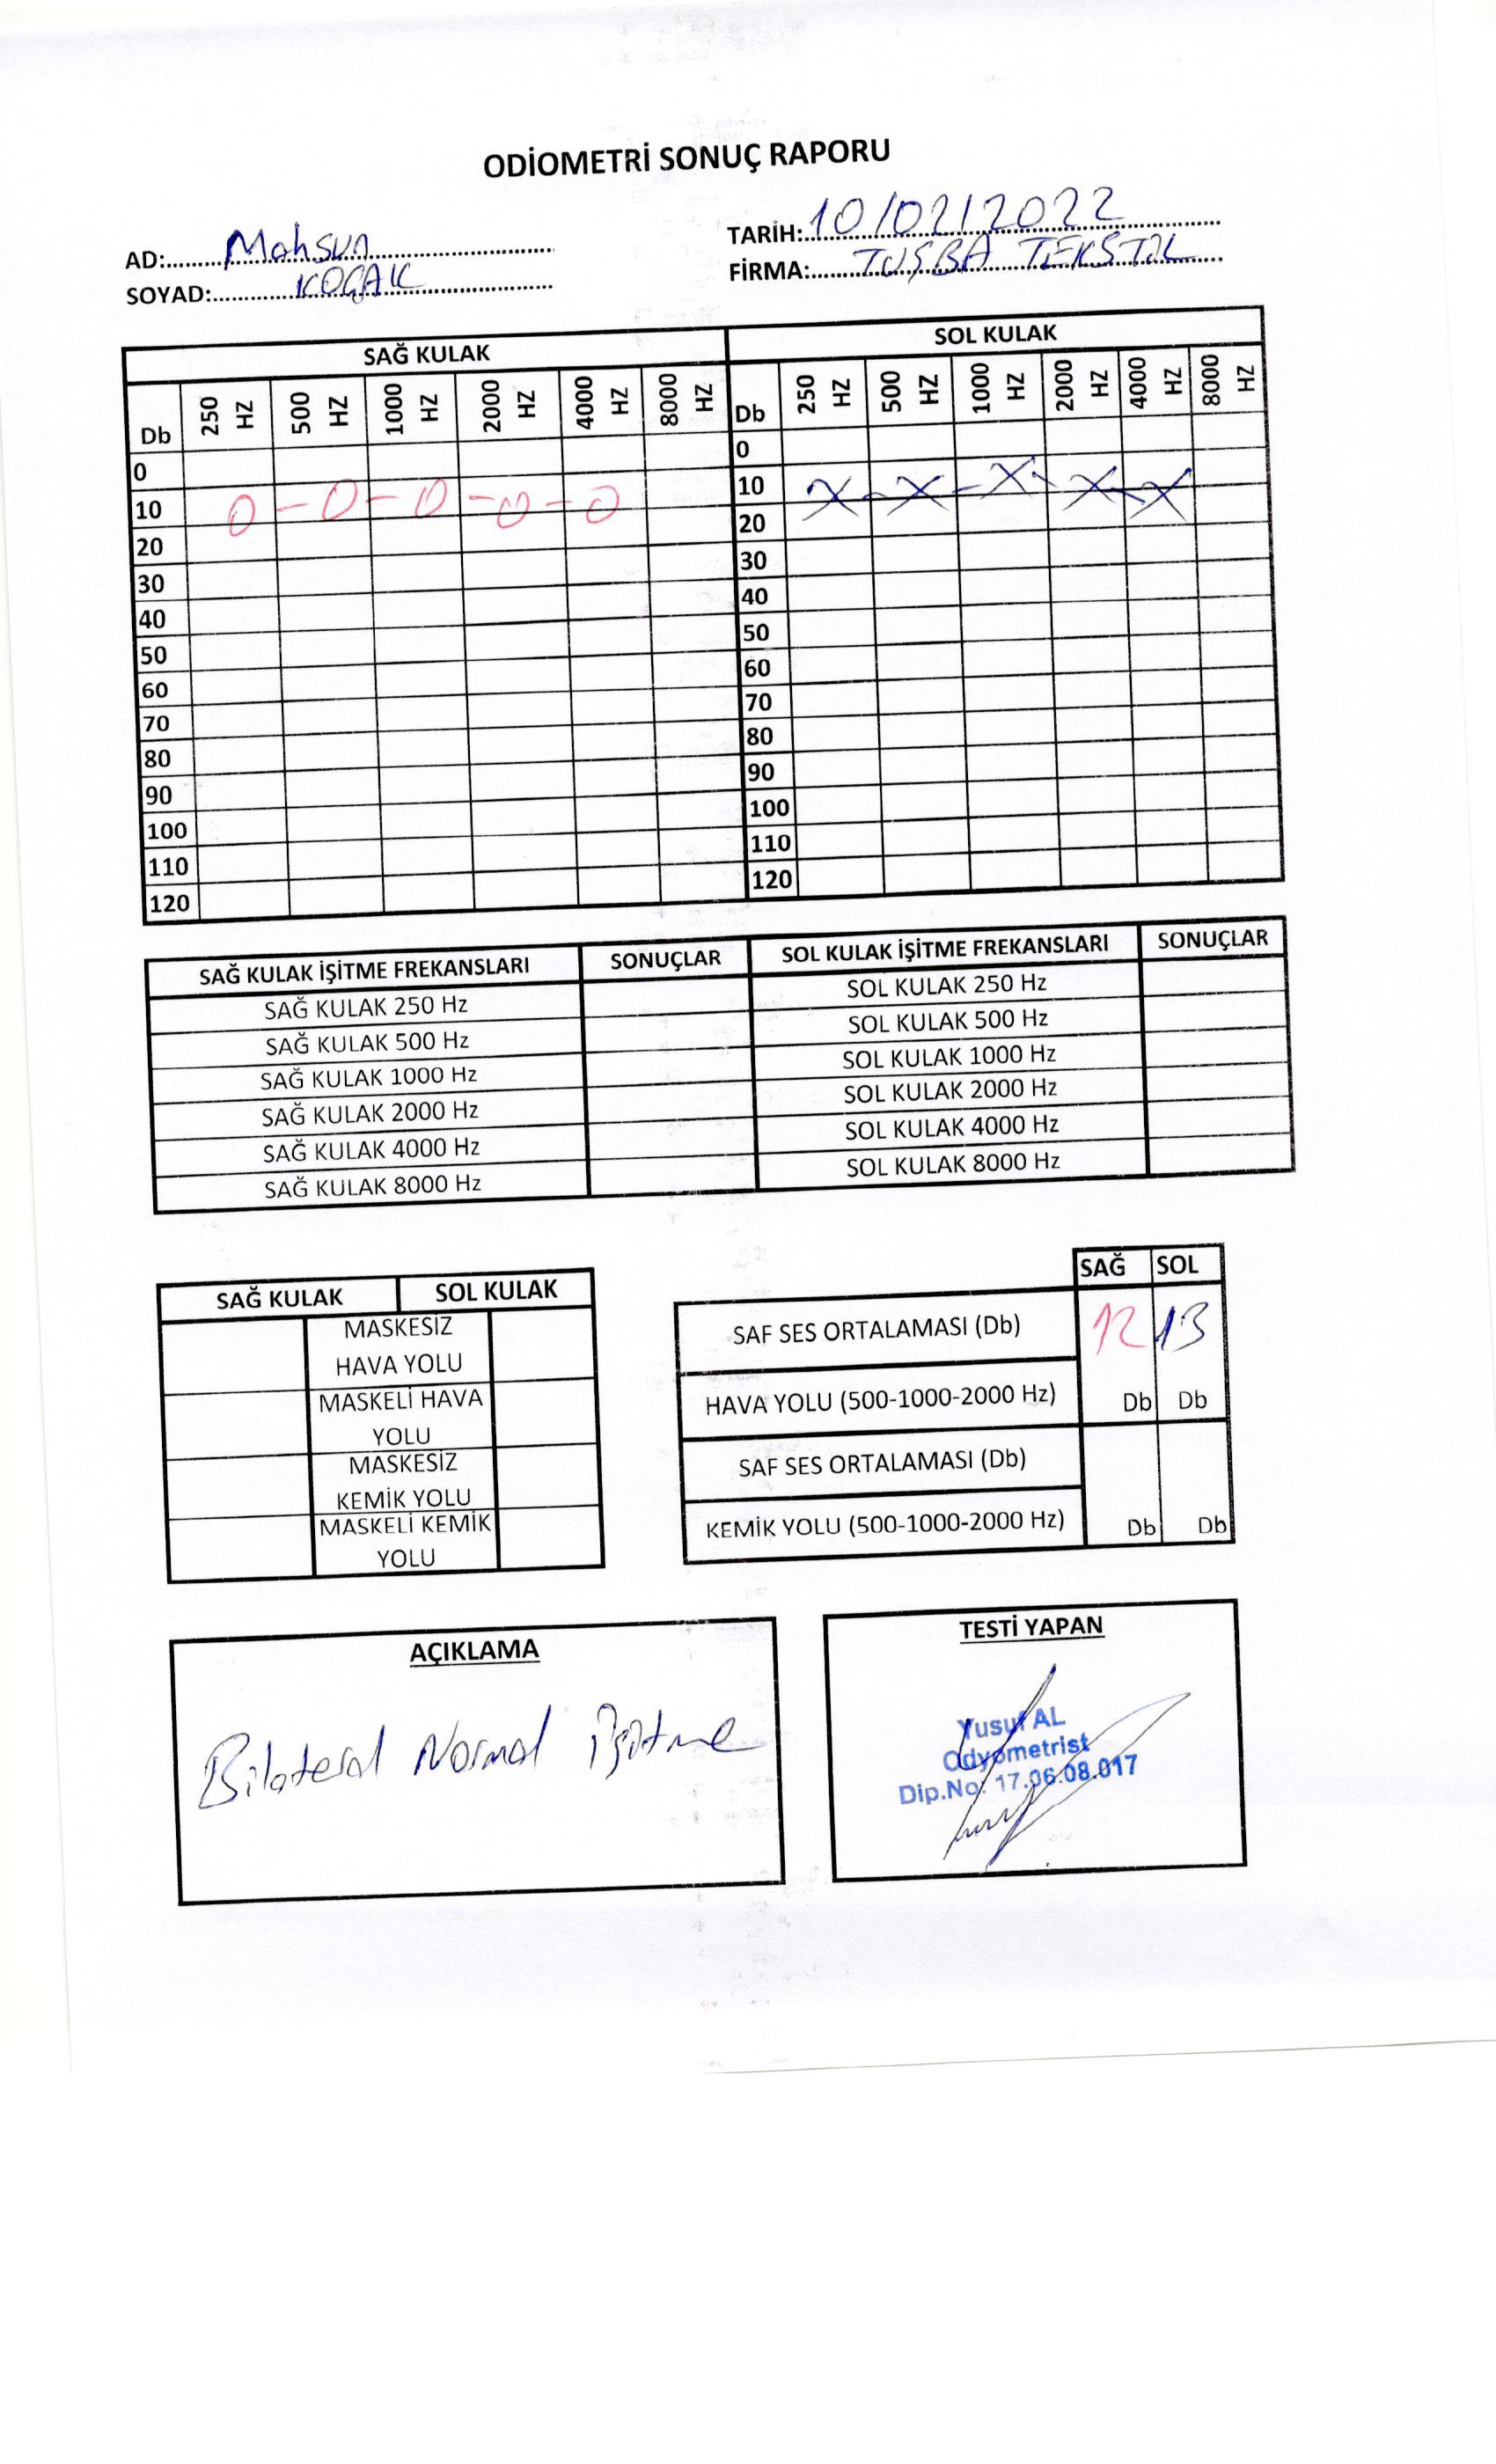 ODİOMETRİ SONUÇ RAPORU
AD:..........Mahsun..........
TARİH:..10/02/2022..........
SOYAD:..........KOÇAK..........
FİRMA:.......TUŞBA TEKSTİL.......
SAĞ KULAK SOL KULAK
Db 250 HZ 500 HZ 1000 HZ 2000 HZ 4000 HZ 8000 HZ Db 250 HZ 500 HZ 1000 HZ 2000 HZ 4000 HZ 8000 HZ
0 0
10 O - O - O - O - O 10 X - X - X - X - X
20 20
30 30
40 40
50 50
60 60
70 70
80 80
90 90
100 100
110 110
120 120
SAĞ KULAK İŞİTME FREKANSLARI SONUÇLAR SOL KULAK İŞİTME FREKANSLARI SONUÇLAR
SAĞ KULAK 250 Hz SOL KULAK 250 Hz
SAĞ KULAK 500 Hz SOL KULAK 500 Hz
SAĞ KULAK 1000 Hz SOL KULAK 1000 Hz
SAĞ KULAK 2000 Hz SOL KULAK 2000 Hz
SAĞ KULAK 4000 Hz SOL KULAK 4000 Hz
SAĞ KULAK 8000 Hz SOL KULAK 8000 Hz
SAĞ KULAK SOL KULAK
MASKESİZ
HAVA YOLU
MASKELİ HAVA
YOLU
MASKESİZ
KEMİK YOLU
MASKELİ KEMİK
YOLU
SAĞ SOL
SAF SES ORTALAMASI (Db) 12 13
HAVA YOLU (500-1000-2000 Hz) Db Db
SAF SES ORTALAMASI (Db)
KEMİK YOLU (500-1000-2000 Hz) Db Db
AÇIKLAMA
Bilateral Normal işitme
TESTİ YAPAN
Yusuf AL
Odyometrist
Dip.No: 17.06.08.017